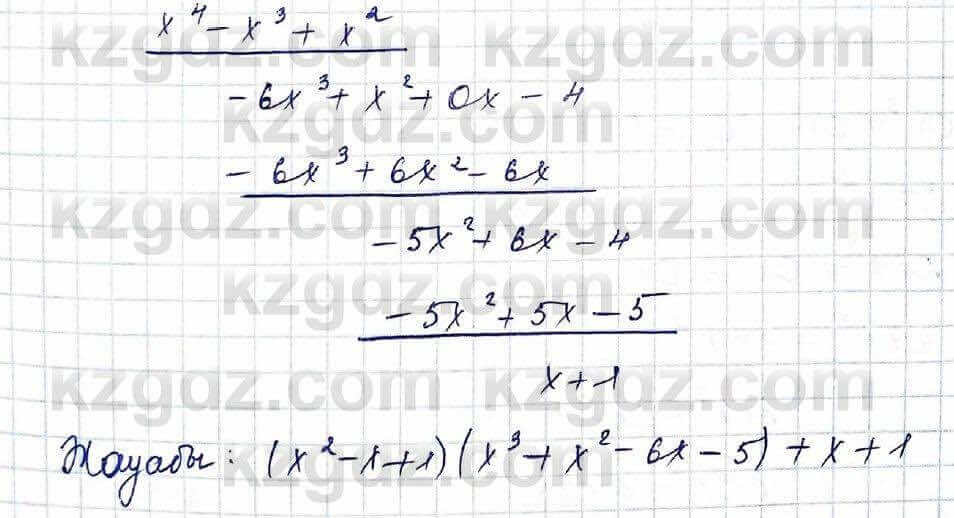 x⁴ - x³ + x²
- 6x³ + x² + 0x - 4
- 6x³ + 6x² - 6x
- 5x² + 6x - 4
- 5x² + 5x - 5
x + 1
Жауабы: (x² - x + 1)(x³ + x² - 6x - 5) + x + 1
kzgdz.com
kzgdz.com
kzgdz.com
kzgdz.com
kzgdz.com
kzgdz.com
kzgdz.com
kzgdz.com
kzgdz.com